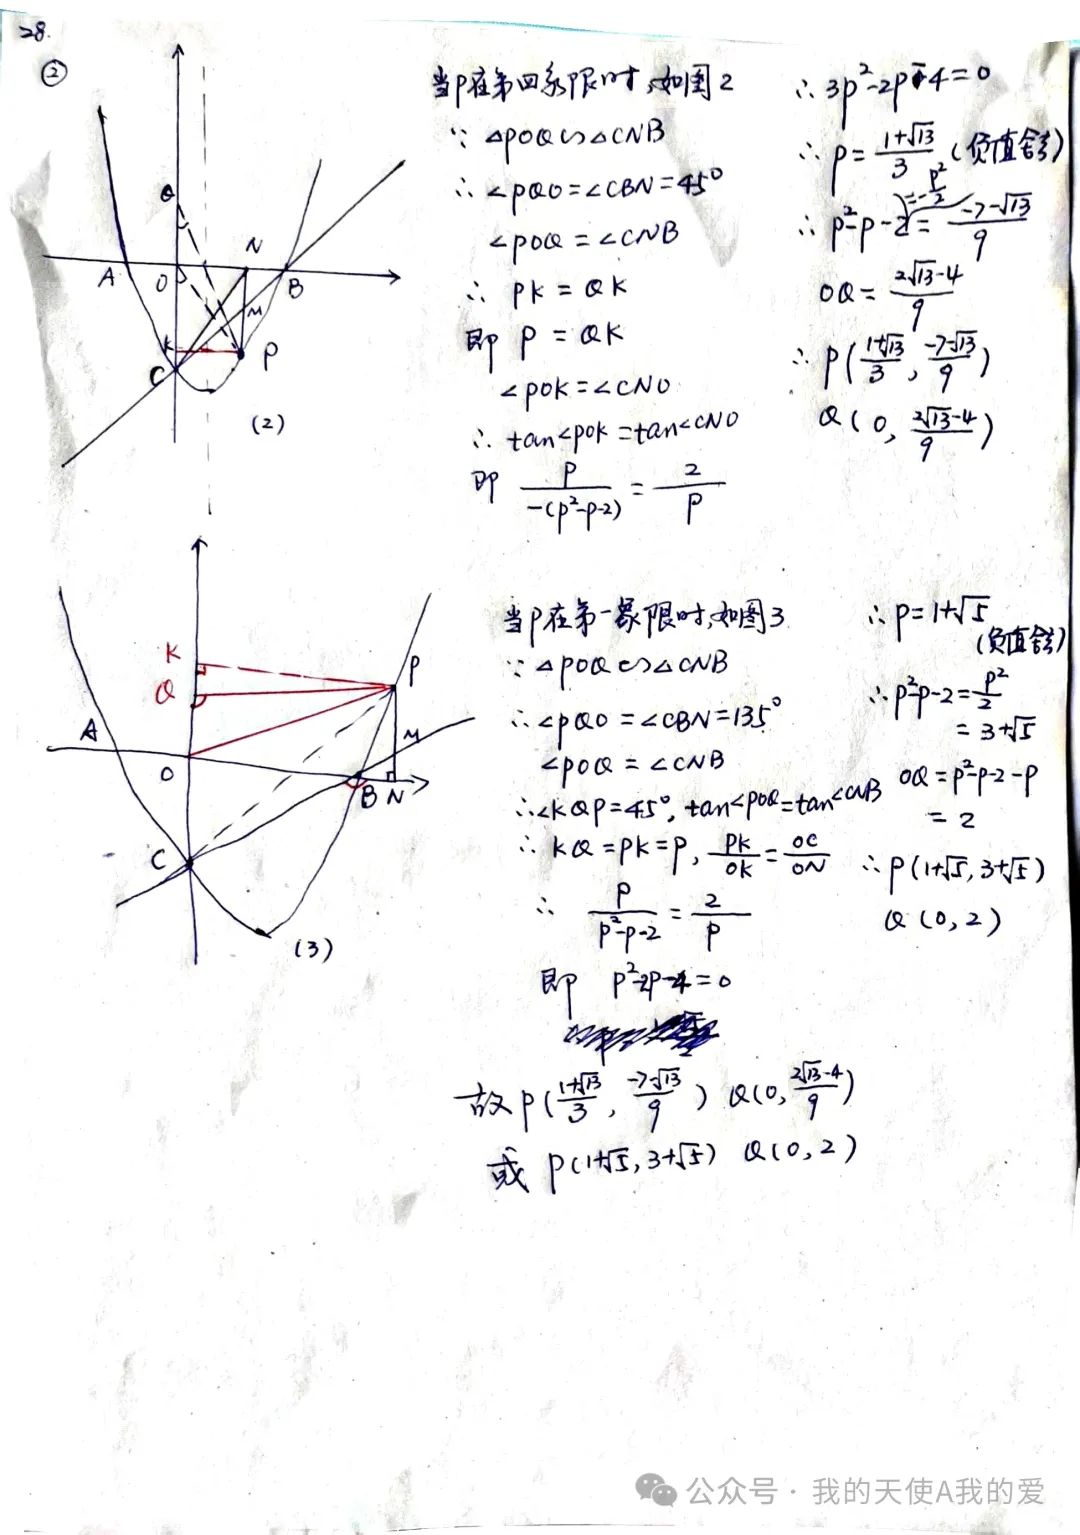 28.
②
Q
A
O
N
B
M
K
C
P
(2)
当P在第四象限时,如图2
∵ △POQ∽△CNB
∴ ∠PQO=∠CBN=45°
∠POQ=∠CNB
∴ PK=QK
即 P=QK
∠POK=∠CNO
∴ tan∠POK=tan∠CNO
即 P/-(P²-P-2) = 2/P
∴ 3P²-2P-4=0
∴ P=(1+√13)/3 (负值舍)
=-P²/2
∴ P²-P-2=(-7-√13)/9
OQ=(2√13-4)/9
∴ P((1+√13)/3, (-7-√13)/9)
Q(0, (2√13-4)/9)
K
Q
P
A
O
M
B
N
C
(3)
当P在第一象限时,如图3
∵ △POQ∽△CNB
∴ ∠PQO=∠CBN=135°
∠POQ=∠CNB
∴ ∠KQP=45°, tan∠POQ=tan∠CNB
∴ KQ=PK=P, PK/OK=OC/ON
∴ P/(P²-P-2)=2/P
即 P²-2P-4=0
∴ P=1+√5
(负值舍)
∴ P²-P-2=P²/2
=3+√5
OQ=P²-P-2-P
=2
∴ P(1+√5, 3+√5)
Q(0, 2)
故P((1+√13)/3, (-7-√13)/9) Q(0, (2√13-4)/9)
或 P(1+√5, 3+√5) Q(0, 2)
公众号·我的天使A我的爱